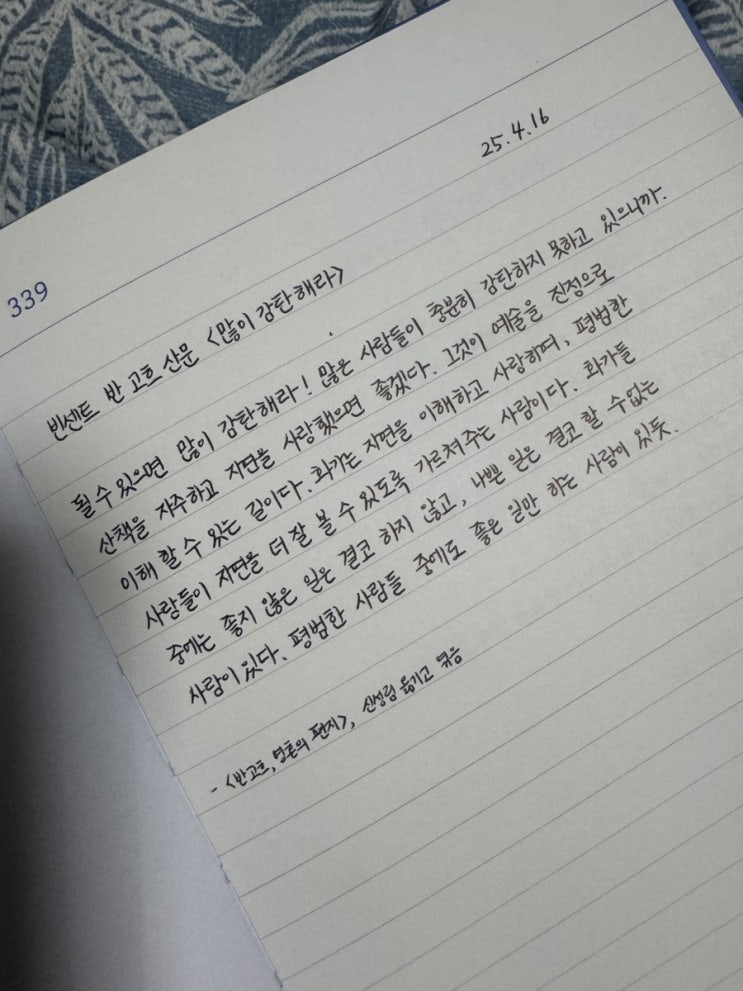 25.4.16
339
빈센트 반 고흐 산문 <많이 감탄해라>
될 수 있으면 많이 감탄해라! 많은 사람들이 충분히 감탄하지 못하고 있으니까.
산책을 자주하고 자연을 사랑했으면 좋겠다. 그것이 예술을 진정으로
이해 할 수 있는 길이다. 화가는 자연을 이해하고 사랑하며, 평범한
사람들이 자연을 더 잘 볼 수 있도록 가르쳐 주는 사람이다. 화가들
중에는 좋지 않은 일은 결코 하지 않고, 나쁜 일은 결코 할 수 없는
사람이 있다. 평범한 사람들 중에도 좋은 일만 하는 사람이 있듯.
- <반 고흐, 영혼의 편지>, 신성림 옮기고 엮음